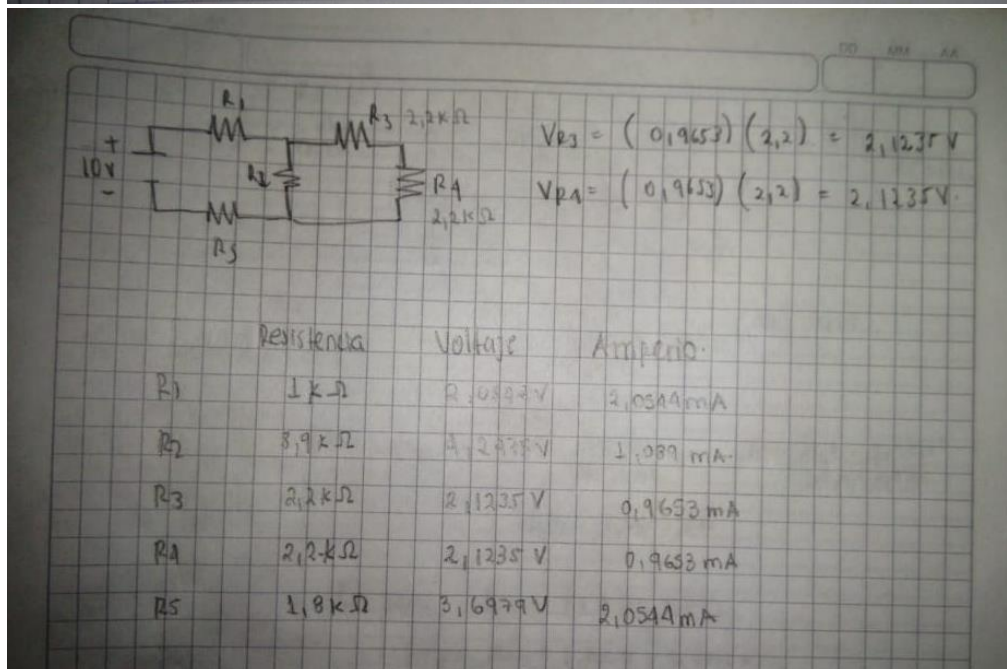 DD MM AA
R1
R3 2,2kΩ
+
10V
-
R2
R4
2,2kΩ
R5
VR3 = (0,9653)(2,2) = 2,1235 V
VR4 = (0,9653)(2,2) = 2,1235V.
Resistencia Voltaje Amperio.
R1 1kΩ 2,0544mA
R2 3,9kΩ 1,089 mA.
R3 2,2kΩ 2,1235 V 0,9653 mA
R4 2,2kΩ 2,1235 V 0,9653 mA
R5 1,8kΩ 3,6979V 2,0544mA